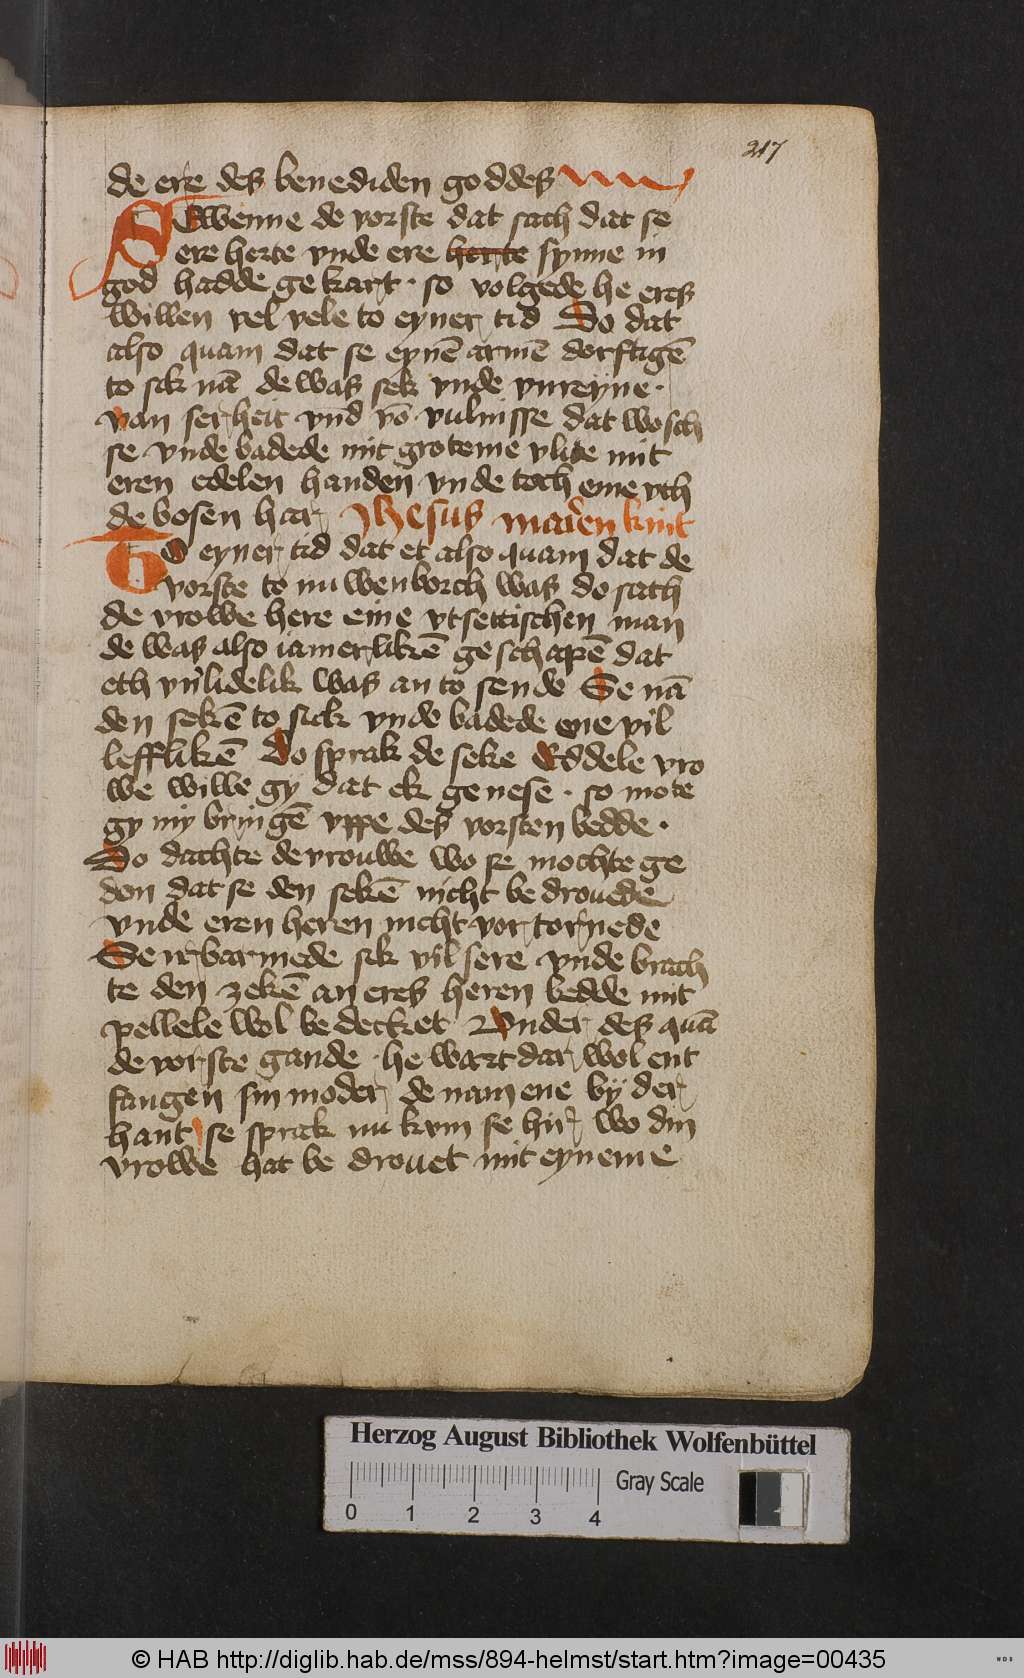 217
de ere des benediden goddes
SEwenne de vorste dat sach dat se
ere herte vnde ere herte synne in
god hadde gekart · so volgede he eres
willen vel vele to eyner tid Do dat
also quam dat se eynē armē dorftigē
to sik nā de was sek vnde vnreyne ·
van serheit vnd vō vulnisse dat wosch
se vnde badede mit groteme vlite mit
eren edelen handen vnde toch eme vth
de bosen har Jhesus marien kint
TO eyner tid dat et also quam dat de
vorste to nuwenborch was do sach
de vrowe here eine vtsettischen man
de was also iamerlikē geschapē dat
eth vnlidelik was an to sende Se nā
den sekē to sick vnde badede ene vil
lefflikē Do sprak de seke Eddele vro
we wille gy dat ek genese · so mote
gy my bringē vppe des vorsten bedde ·
Do dachte de vrouwe wo se mochte ge
don dat se den sekē nicht bedrouede
vnde eren heren nicht vortornede
Se irbarmede sik vil sere vnde brach
te den zekē an eres heren bedde mit
pellele wol bedecket Vnder des quā
de vorste gande · he wart dar wol ent
fangen sin moder de nam ene by der
hant se sprak nu kum se hir wo din
vrowe hat bedrouet mit eyneme
Herzog August Bibliothek Wolfenbüttel
Gray Scale
0 1 2 3 4
© HAB http://diglib.hab.de/mss/894-helmst/start.htm?image=00435